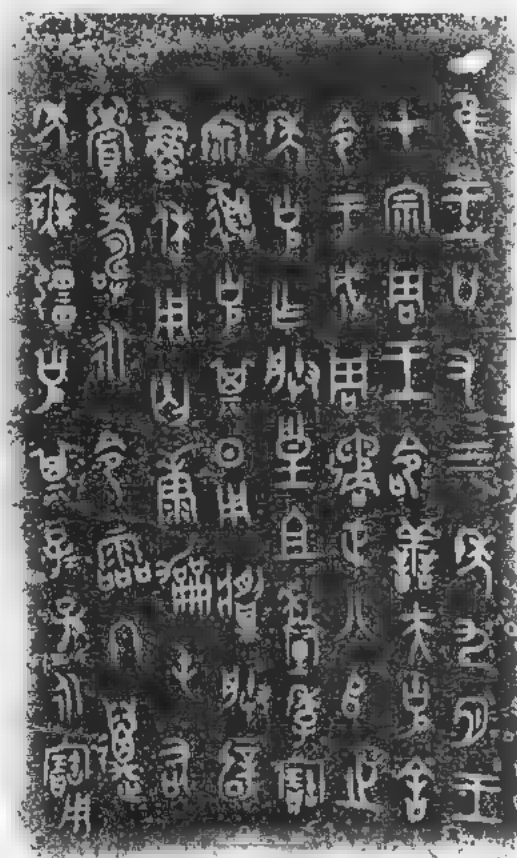 隹王廿又三年九月王
才宗周王命善夫克舍
令于成周遹正八𠂤之
年克乍朕皇且釐季寶
宗彝克其日用䵼朕辟
魯休用匄康勵屯右
眉壽永令霝冬萬
年無疆克其子孫永寶用